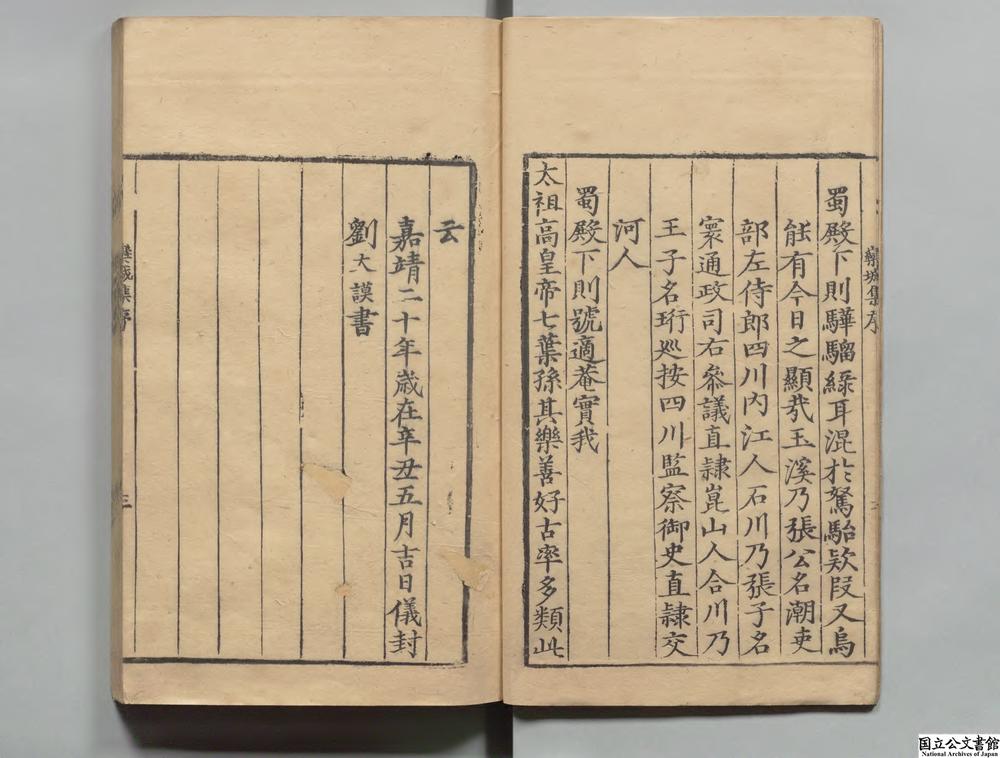 蜀殿下則驊騮綠耳混於駑駘欵段又烏
能有今日之顯哉玉溪乃張公名潮吏
部左侍郎四川內江人石川乃張子名
寰通政司右叅議直隷崑山人合川乃
王子名珩廵按四川監察御史直隷交
河人
蜀殿下則號適菴實我
太祖高皇帝七葉孫其樂善好古率多類此
云
嘉靖二十年歲在辛丑五月吉日儀封
劉大謨書
欒城集序
欒城集序
三
国立公文書館
National Archives of Japan